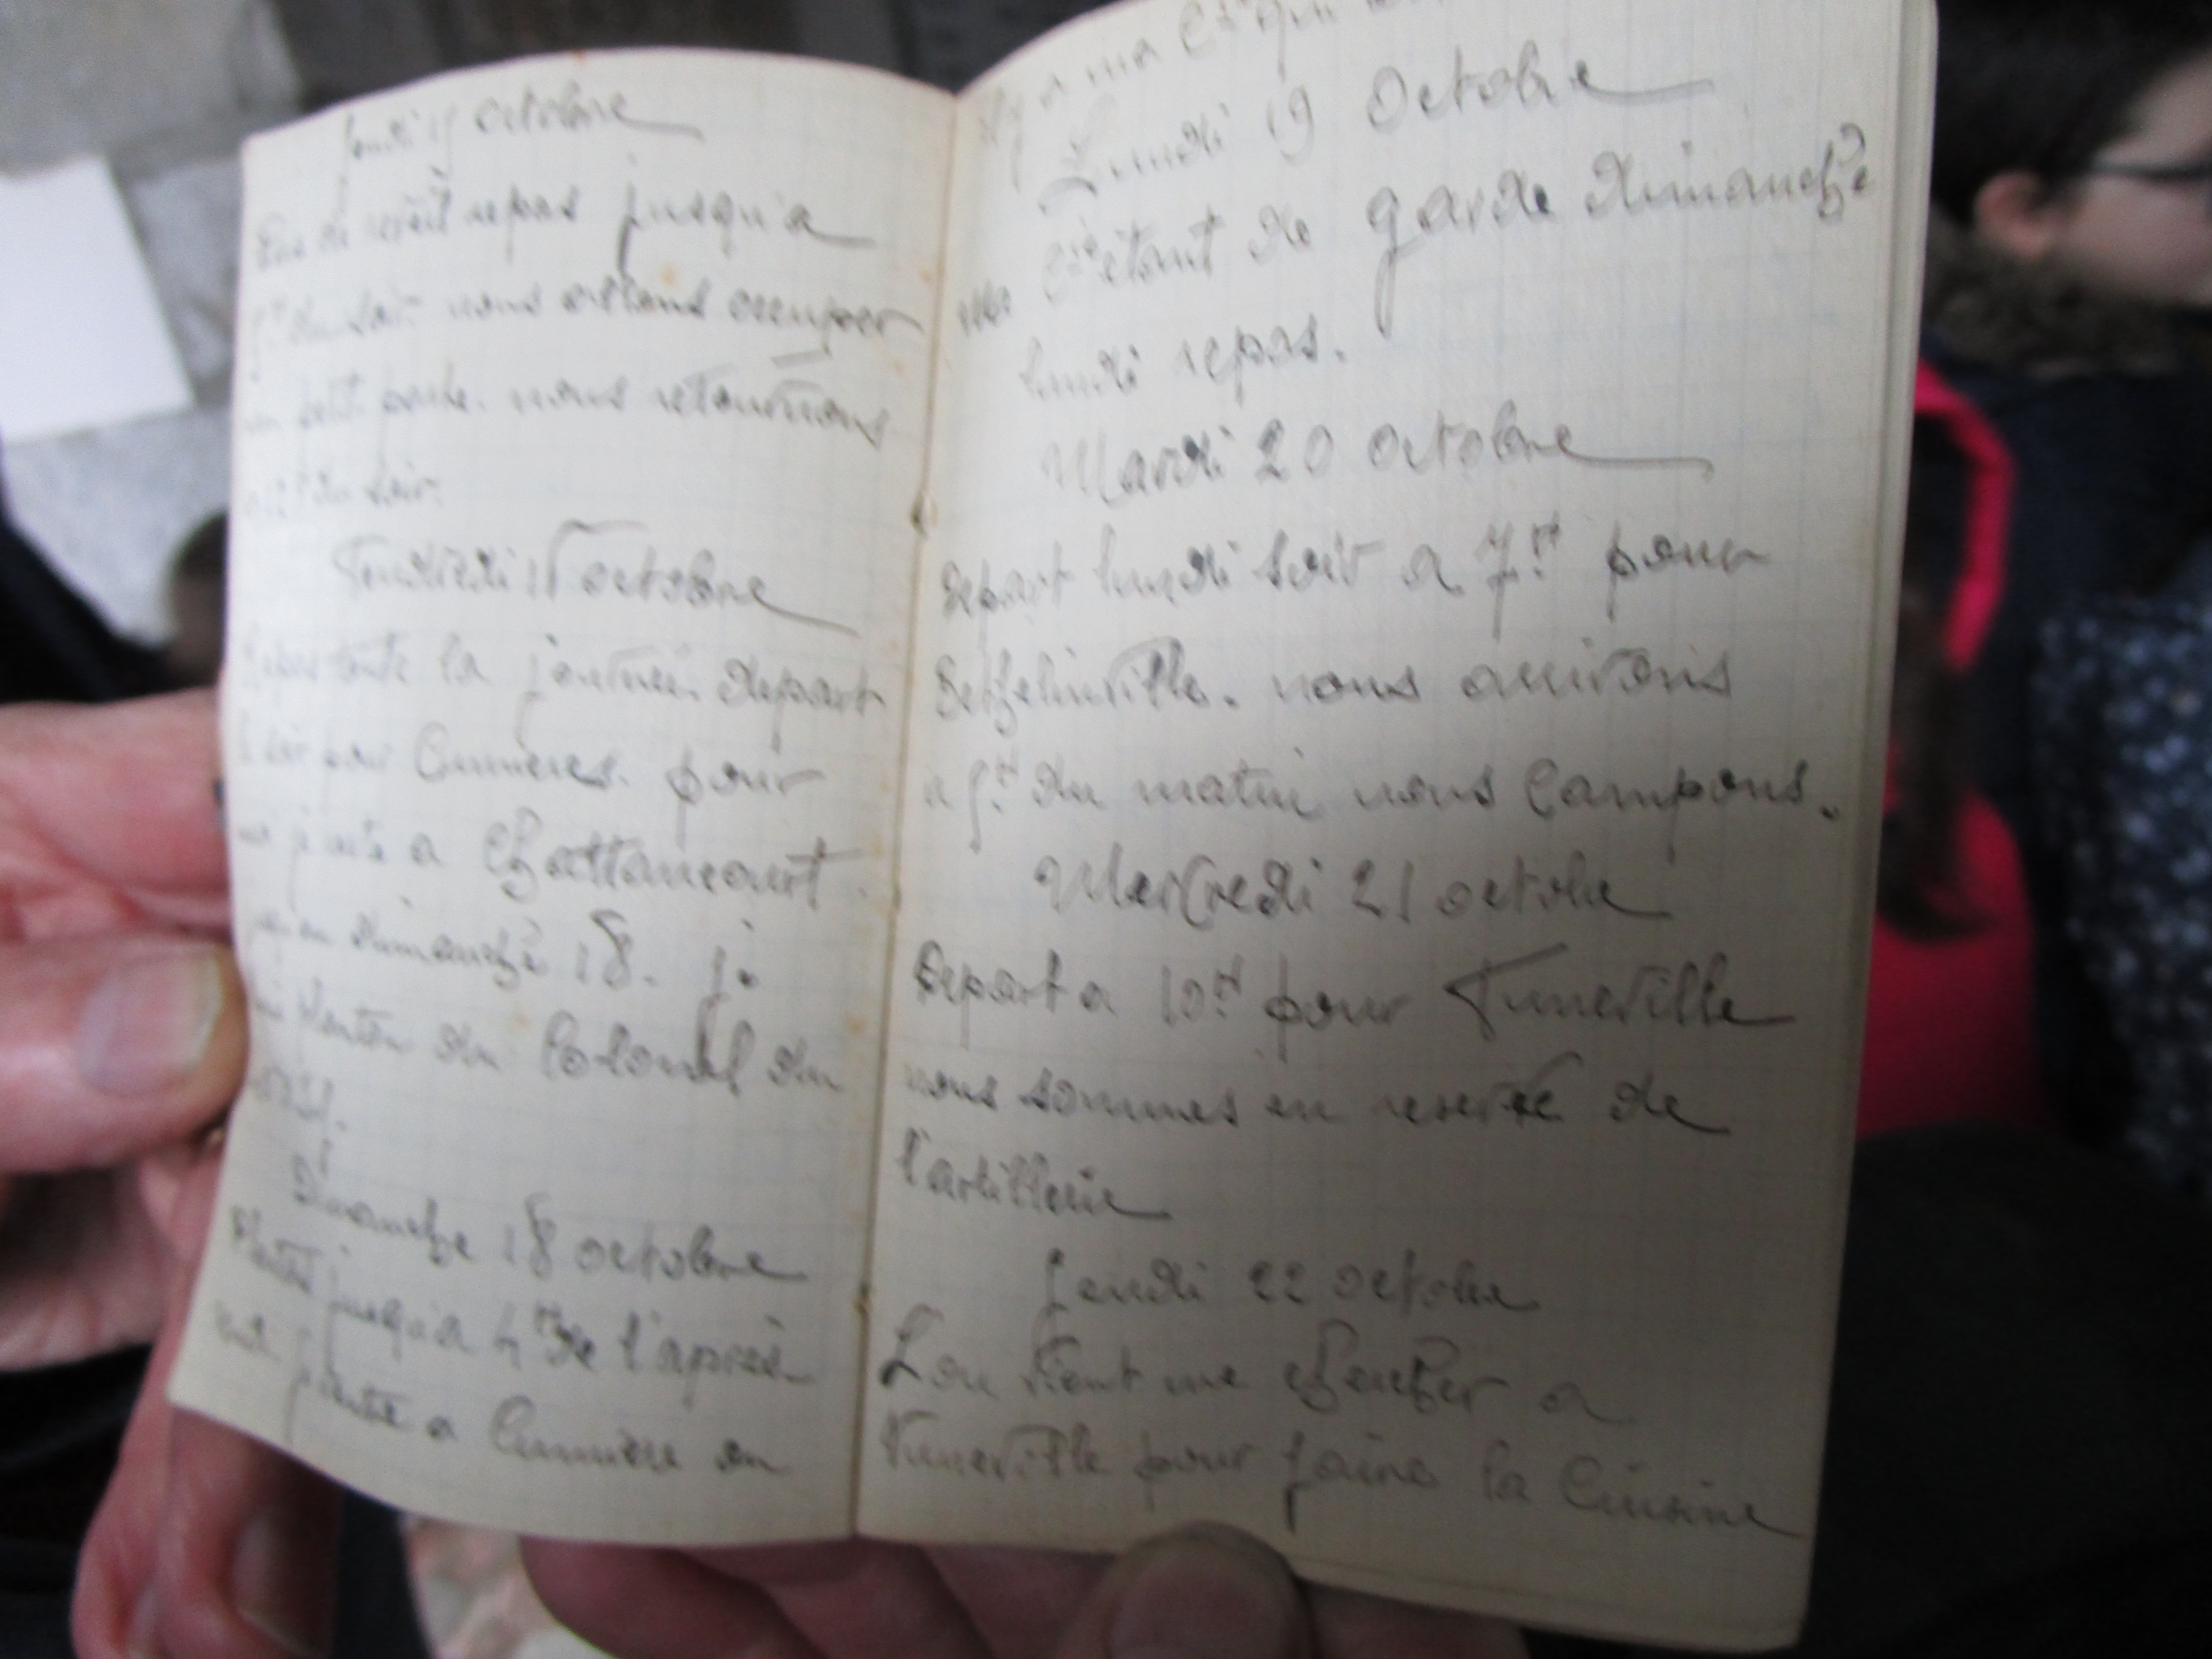 Jeudi 15 octobre
repas jusqu'a
du soir nous allons occuper
un petit poste. nous retournons
du soir.
Vendredi 16 octobre
Repos toute la journée depart
le soir pour Cumières. pour
a Chattancourt.
dimanche 18. je
planton du Colonel du
Dimanche 18 octobre
jusqu'a 4h de l'après
a Cumière en
a ma Cie qui
Lundi 19 Octobre
Cie étant de garde dimanche
lundi repos.
Mardi 20 octobre
depart lundi soir a 7h pour
Bethelinville. nous arrivons
a du matin nous Campons.
Mercredi 21 octobre
Depart a 10h pour Funeville
nous sommes en reserve de
l'artillerie
Jeudi 22 octobre
Lon vient me chercher a
Vuneville pour faire la Cuisine